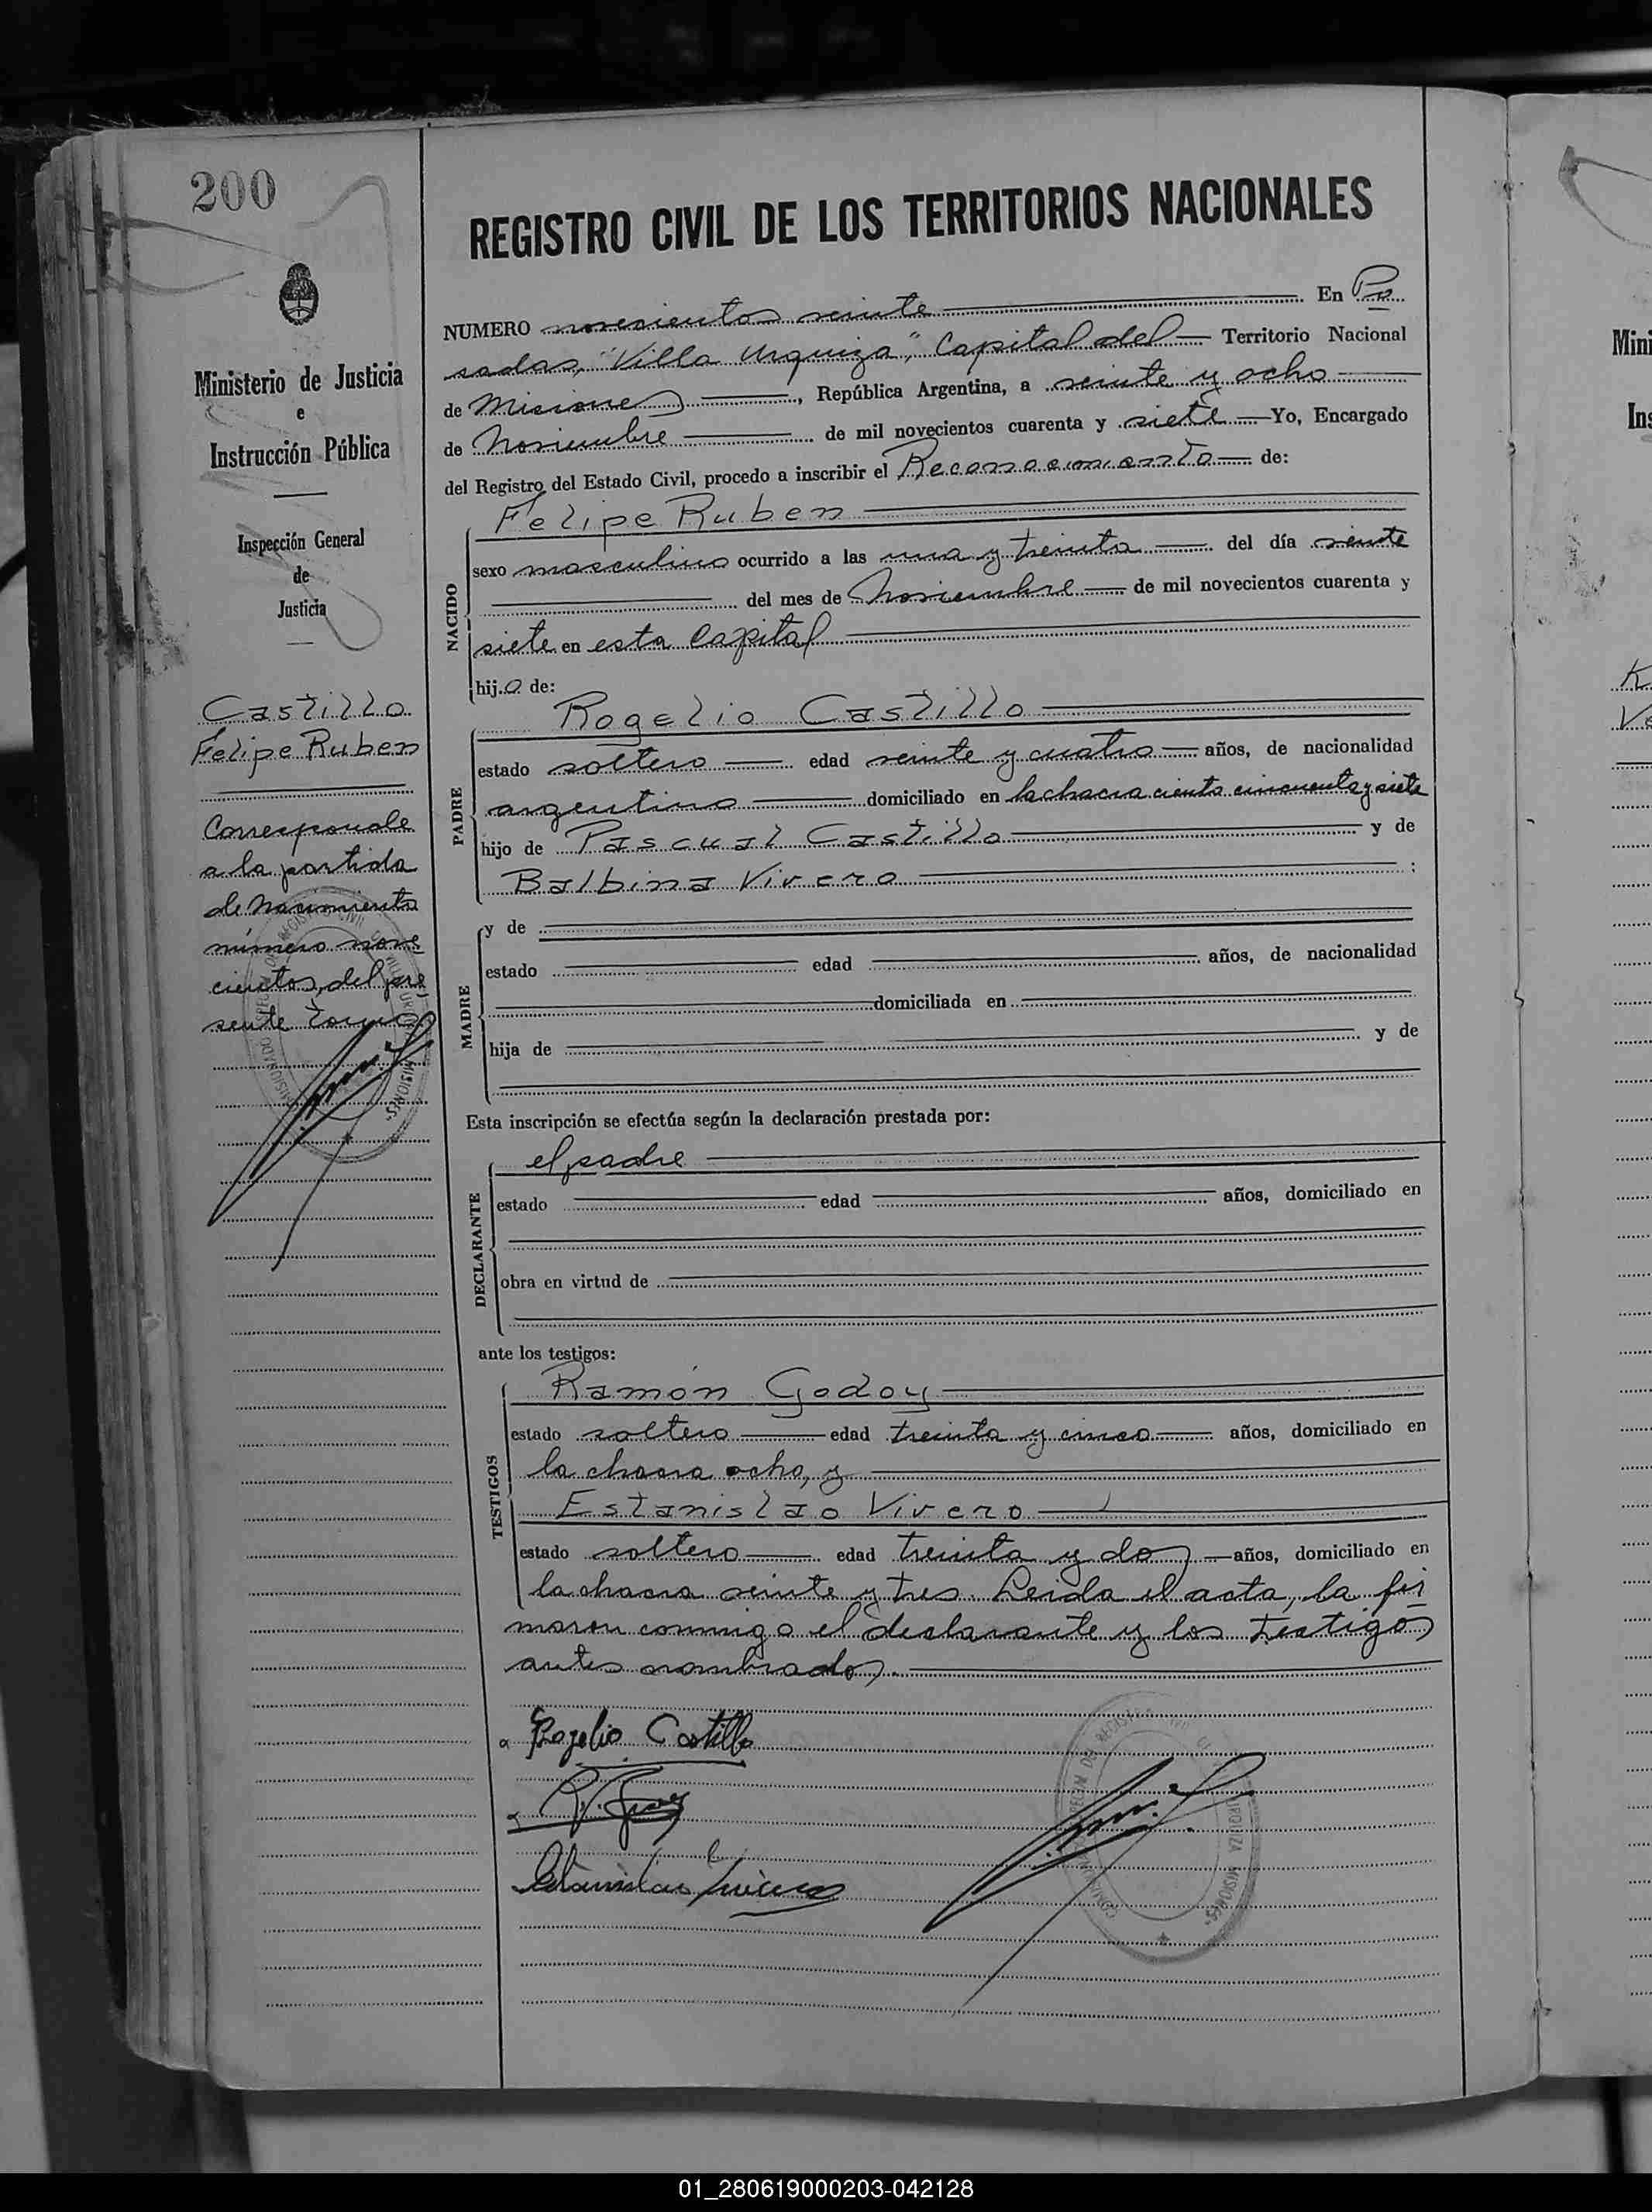 200
Ministerio de Justicia
e
Instrucción Pública
Inspección General
de
Justicia
Castillo
Felipe Ruben
Corresponde
a la partida
de Nacimiento
número nove
cientos, del pre
sente tomo
REGISTRO CIVIL DE LOS TERRITORIOS NACIONALES
NUMERO novecientos veinte En Po
sadas, "Villa Urquiza", Capital del Territorio Nacional
de Misiones, República Argentina, a veinte y ocho
de Noviembre de mil novecientos cuarenta y siete Yo, Encargado
del Registro del Estado Civil, procedo a inscribir el Reconocimiento de:
NACIDO
Felipe Ruben
sexo masculino ocurrido a las una y treinta del día veinte
del mes de Noviembre de mil novecientos cuarenta y
siete en esta Capital
hijo de:
PADRE
Rogelio Castillo
estado soltero edad veinte y cuatro años, de nacionalidad
argentino domiciliado en la chacra ciento cincuenta y siete
hijo de Pascual Castillo y de
Balbina Vivero :
MADRE
y de
estado edad años, de nacionalidad
domiciliada en
hija de y de
Esta inscripción se efectúa según la declaración prestada por:
DECLARANTE
el padre
estado edad años, domiciliado en
obra en virtud de
ante los testigos:
TESTIGOS
Ramón Godoy
estado soltero edad treinta y cinco años, domiciliado en
la chacra ocho, y
Estanislao Vivero
estado soltero edad treinta y dos años, domiciliado en
la chacra veinte y tres. Leida el acta, la fir
maron conmigo el declarante y los testigos
antes nombrados.
Rogelio Castillo
Estanislao Vivero
Mini
Ins
01_280619000203-042128